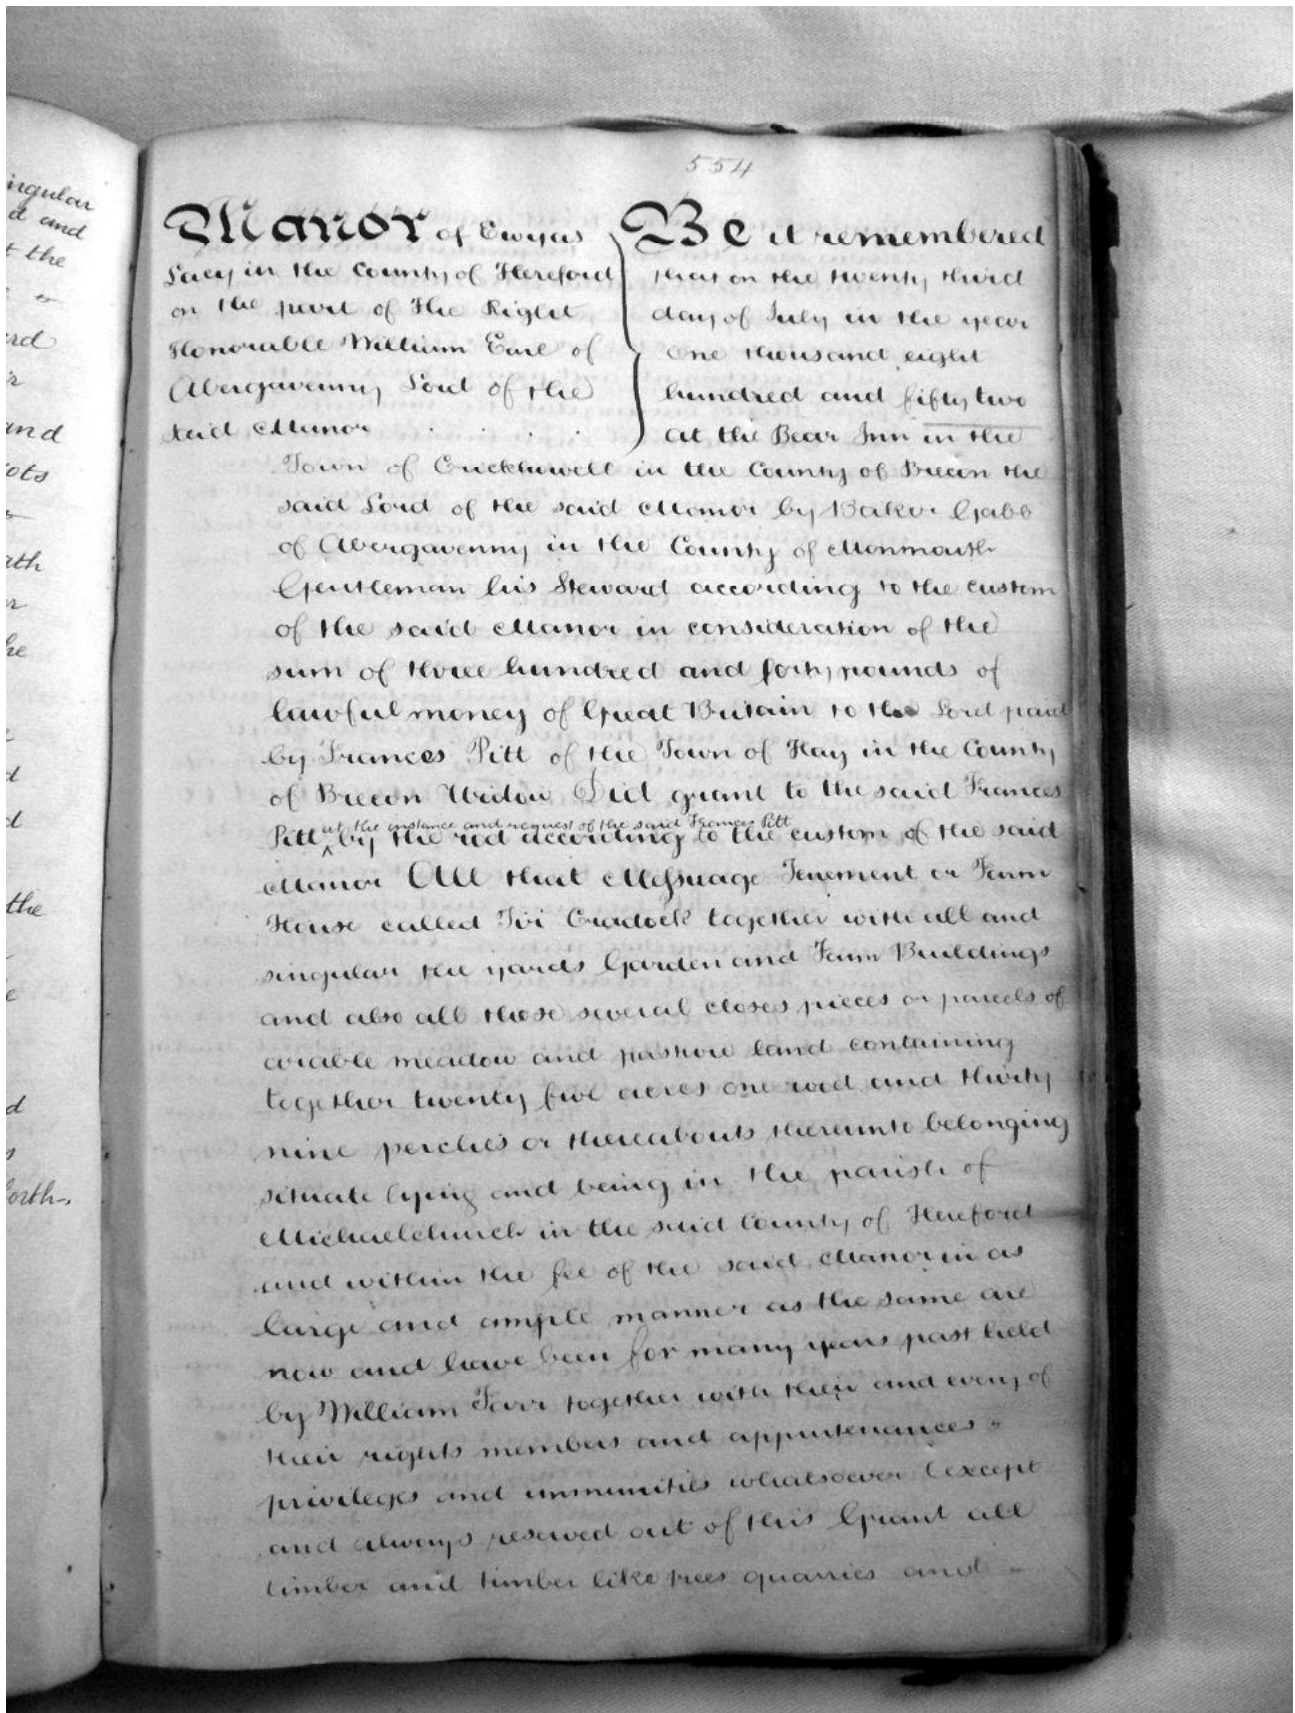 ingular
d and
t the
rd
and
ots
ath
he
the
orth
554
Manor of Ewyas
Lacy in the County of Hereford
on the part of The Right
Honorable William Earl of
Abergavenny Lord of the
said Manor . . . .
Be it remembered
that on the twenty third
day of July in the year
one thousand eight
hundred and fifty two
at the Bear Inn in the
Town of Crickhowell in the County of Brecon the
said Lord of the said Manor by Baker Gabb
of Abergavenny in the County of Monmouth
Gentleman his Steward according to the custom
of the said Manor in consideration of the
sum of three hundred and forty pounds of
lawful money of Great Britain to the Lord paid
by Frances Pitt of the Town of Hay in the County
of Brecon Widow Did grant to the said Frances
at the instance and request of the said Frances Pitt
Pitt ^ by the rod according to the custom of the said
Manor All that Messuage Tenement or Farm
House called Tir Cradock together with all and
singular the yards Garden and Farm Buildings
and also all those several closes pieces or parcels of
arable meadow and pasture land containing
together twenty five acres one rood and thirty
nine perches or thereabouts thereunto belonging
situate lying and being in the parish of
Michaelchurch in the said County of Hereford
and within the fee of the said Manor in as
large and ample manner as the same are
now and have been for many years past held
by William Farr together with their and every of
their rights members and appurtenances
privileges and immunities whatsoever (except
and always reserved out of this Grant all
timber and timber like trees quarries and